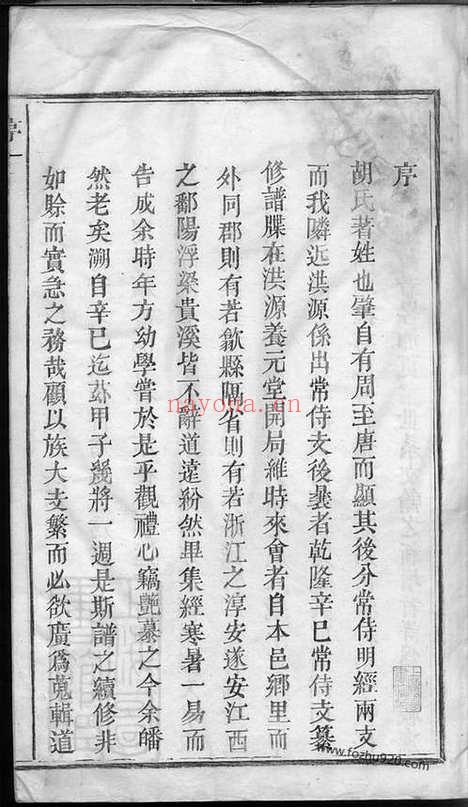 序
胡氏著姓也肇自有周至唐而顯其後分常侍明經兩支
而我隣近洪源係出常侍支後曩者乾隆辛巳常侍支纂
修譜牒在洪源養元堂開局維時來會者自本邑鄉里而
外同郡則有若歙縣隔省則有若浙江之淳安遂安江西
之鄱陽浮梁貴溪皆不辭道遠紛然畢集經寒暑一易而
告成余時年方幼學嘗於是乎觀禮心竊艷慕之今余皤
然老矣溯自辛巳迄茲甲子幾將一週是斯譜之續修非
如賒而實急之務哉顧以族大支繁而必欲廣爲蒐輯道
序
一
nayona.cn
www.fozhu920.com